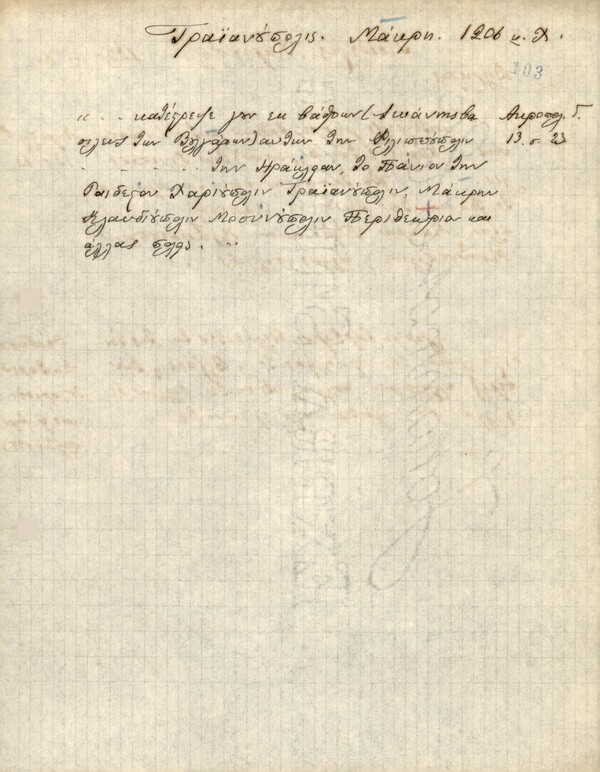 Τραϊανούπολις. Μάκρη. 1206 μ. Χ.
103
"... κατέτρεψε γουν εκ βάθρων (Ιωάννης βα Ακροπολ. Γ.
σιλεύς των Βουλγάρων) αυτών την Φιλιππούπολιν 13. σ. 23
. . . . . την Ηράκλειαν, το Πάνιον την
Ραιδεστόν Χαριούπολιν Τραϊανούπολιν, Μάκρην
Κλαυδιούπολιν Μοσυνούπολιν Περιθεώριον και
άλλας πολλάς. ..."